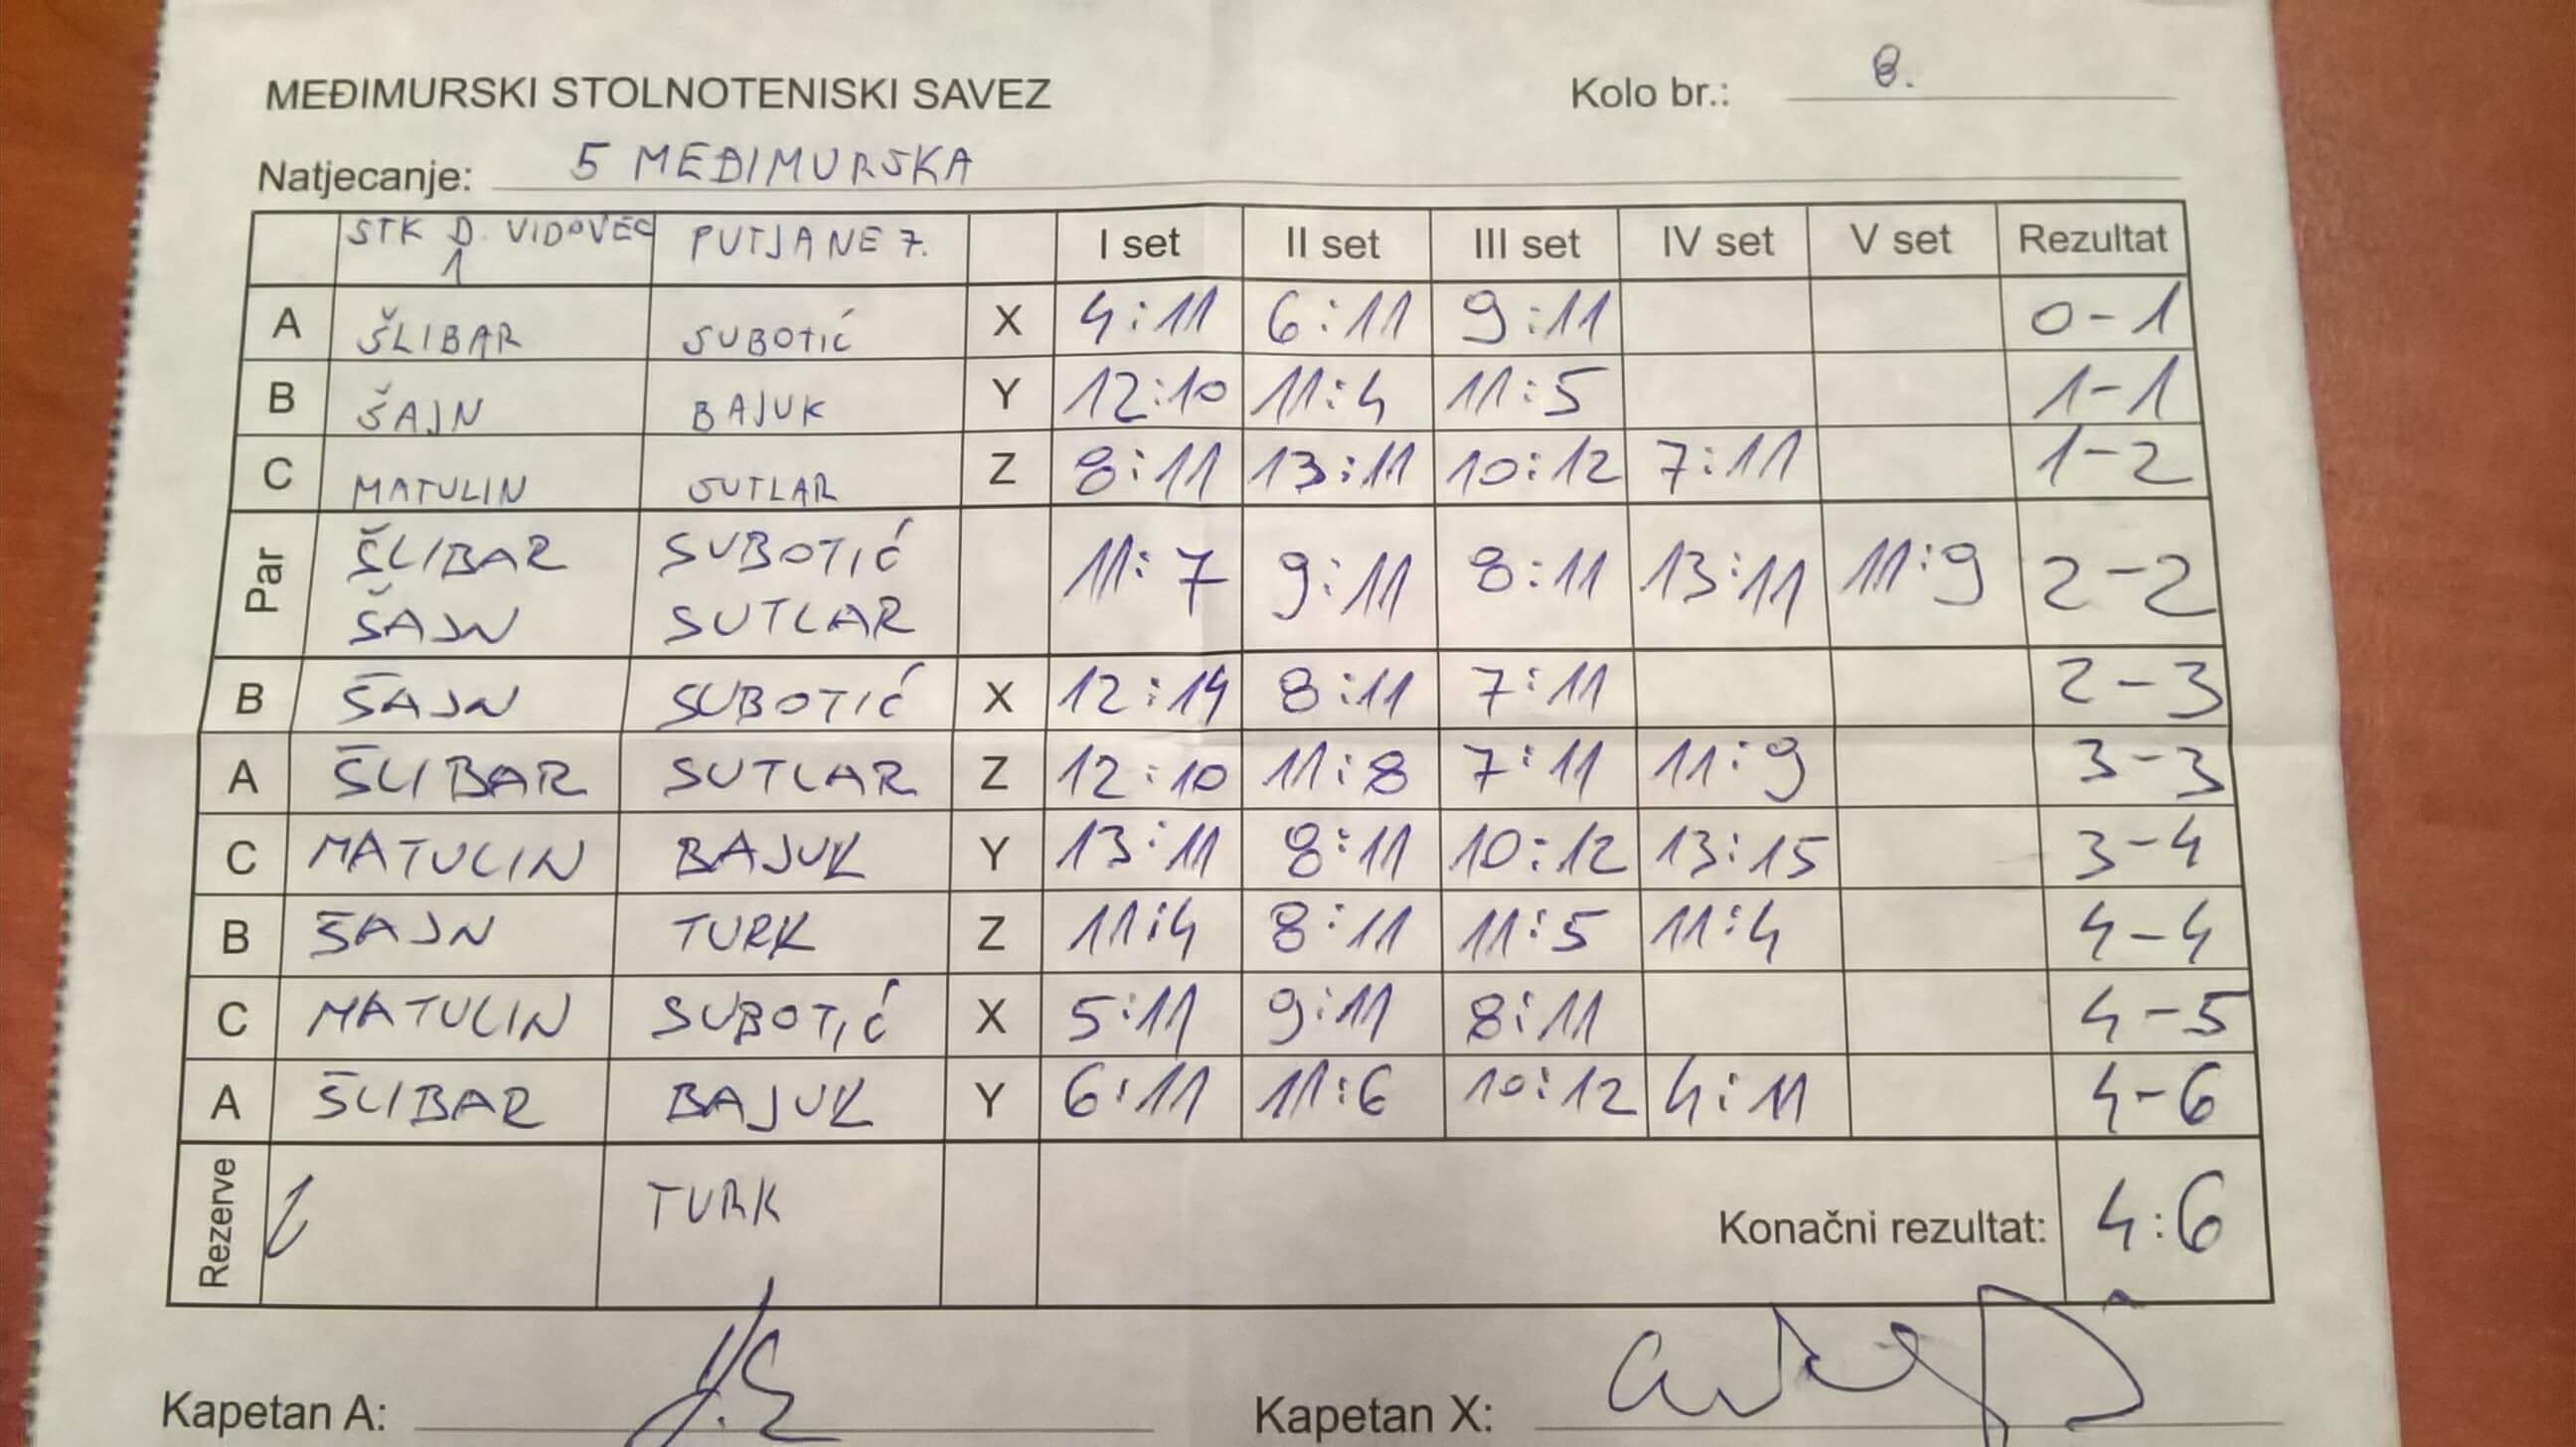 MEĐIMURSKI STOLNOTENISKI SAVEZ Kolo br.: 8.
Natjecanje: 5 MEĐIMURSKA
STK D. VIDOVEC 1 PUTJANE 7. I set II set III set IV set V set Rezultat
A ŠLIBAR SUBOTIĆ X 4:11 6:11 9:11 0-1
B ŠAJN BAJUK Y 12:10 11:4 11:5 1-1
C MATULIN SUTLAR Z 8:11 13:11 10:12 7:11 1-2
Par ŠLIBAR SUBOTIĆ 11:7 9:11 8:11 13:11 11:9 2-2
ŠAJN SUTLAR
B ŠAJN SUBOTIĆ X 12:14 8:11 7:11 2-3
A ŠLIBAR SUTLAR Z 12:10 11:8 7:11 11:9 3-3
C MATULIN BAJUK Y 13:11 8:11 10:12 13:15 3-4
B ŠAJN TURK Z 11:4 8:11 11:5 11:4 4-4
C MATULIN SUBOTIĆ X 5:11 9:11 8:11 4-5
A ŠLIBAR BAJUK Y 6:11 11:6 10:12 4:11 4-6
Rezerve TURK Konačni rezultat: 4:6
Kapetan A: Kapetan X: